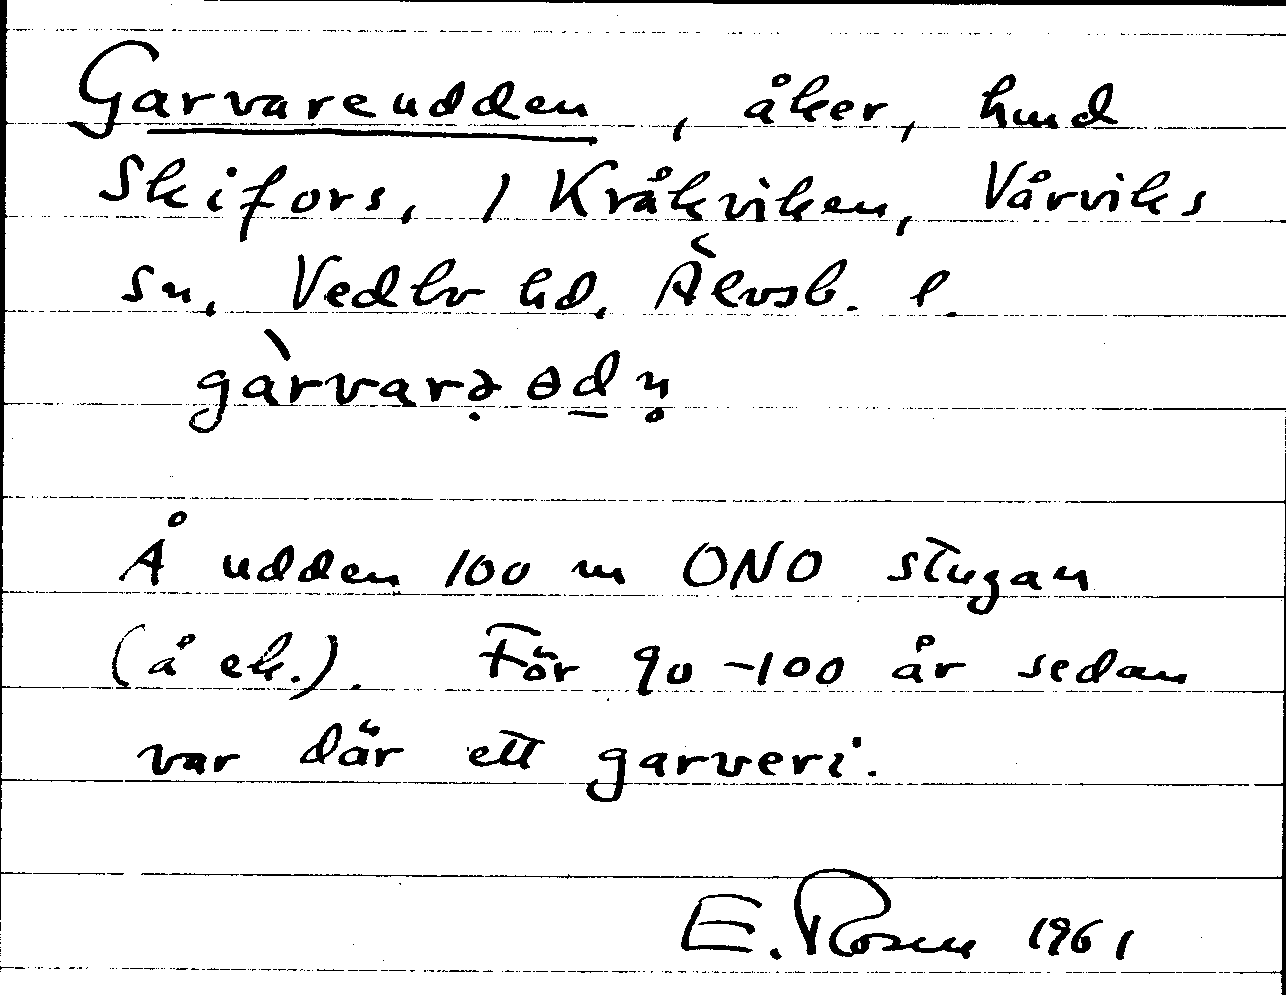 Garvareudden, åker, hmd
Skifors, 1 Kråkviken, Vårviks
sn, Vedbo hd, Älvsb. l.
gàrvarə ɵdn̥
Å udden 100 m ONO stugan
(å ek.). För 90-100 år sedan
var där ett garveri.
E. Rosen 1961